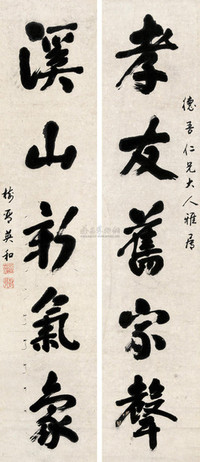 孝友舊家聲
德吾仁兄大人雅屬
溪山新氣象
英和